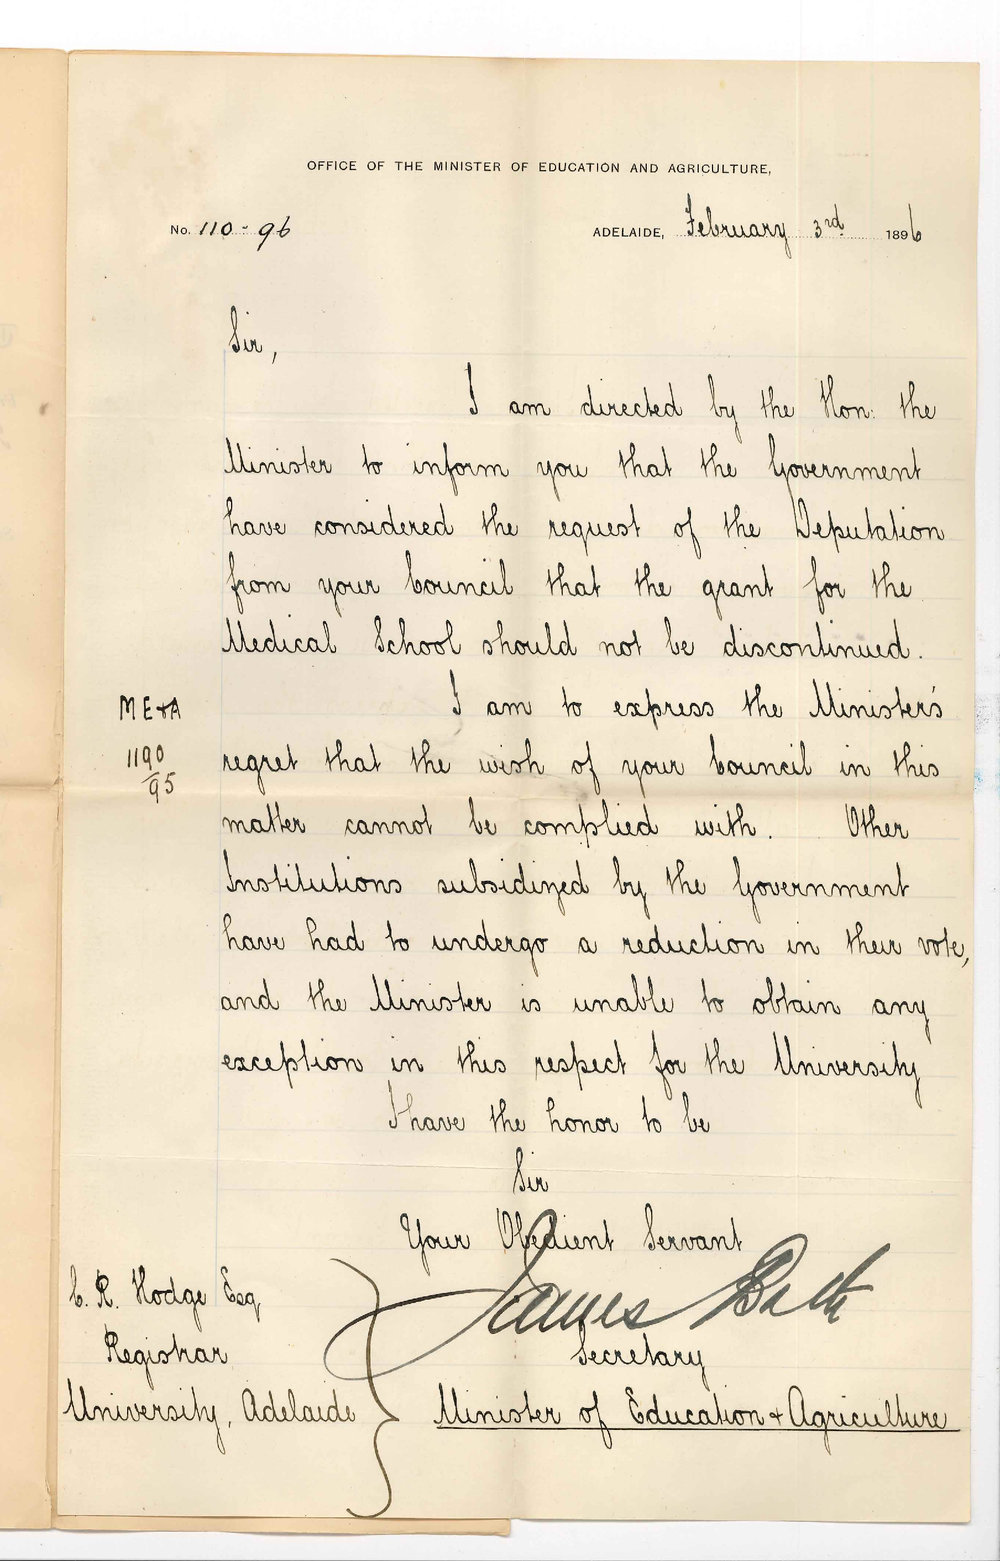 OFFICE OF THE MINISTER OF EDUCATION AND AGRICULTURE,
No. 110-96 ADELAIDE, February 3rd 1896
Sir,
I am directed by the Hon: the
Minister to inform you that the Government
have considered the request of the Deputation
from your Council that the grant for the
Medical School should not be discontinued.
I am to express the Minister's
M E & A
1190
/95
regret that the wish of your Council in this
matter cannot be complied with. Other
Institutions subsidized by the Government
have had to undergo a reduction in their vote,
and the Minister is unable to obtain any
exception in this respect for the University
I have the honor to be
Sir
Your Obedient Servant
James Bath
Secretary
Minister of Education & Agriculture
C. R. Hodge Esq
Registrar
University, Adelaide